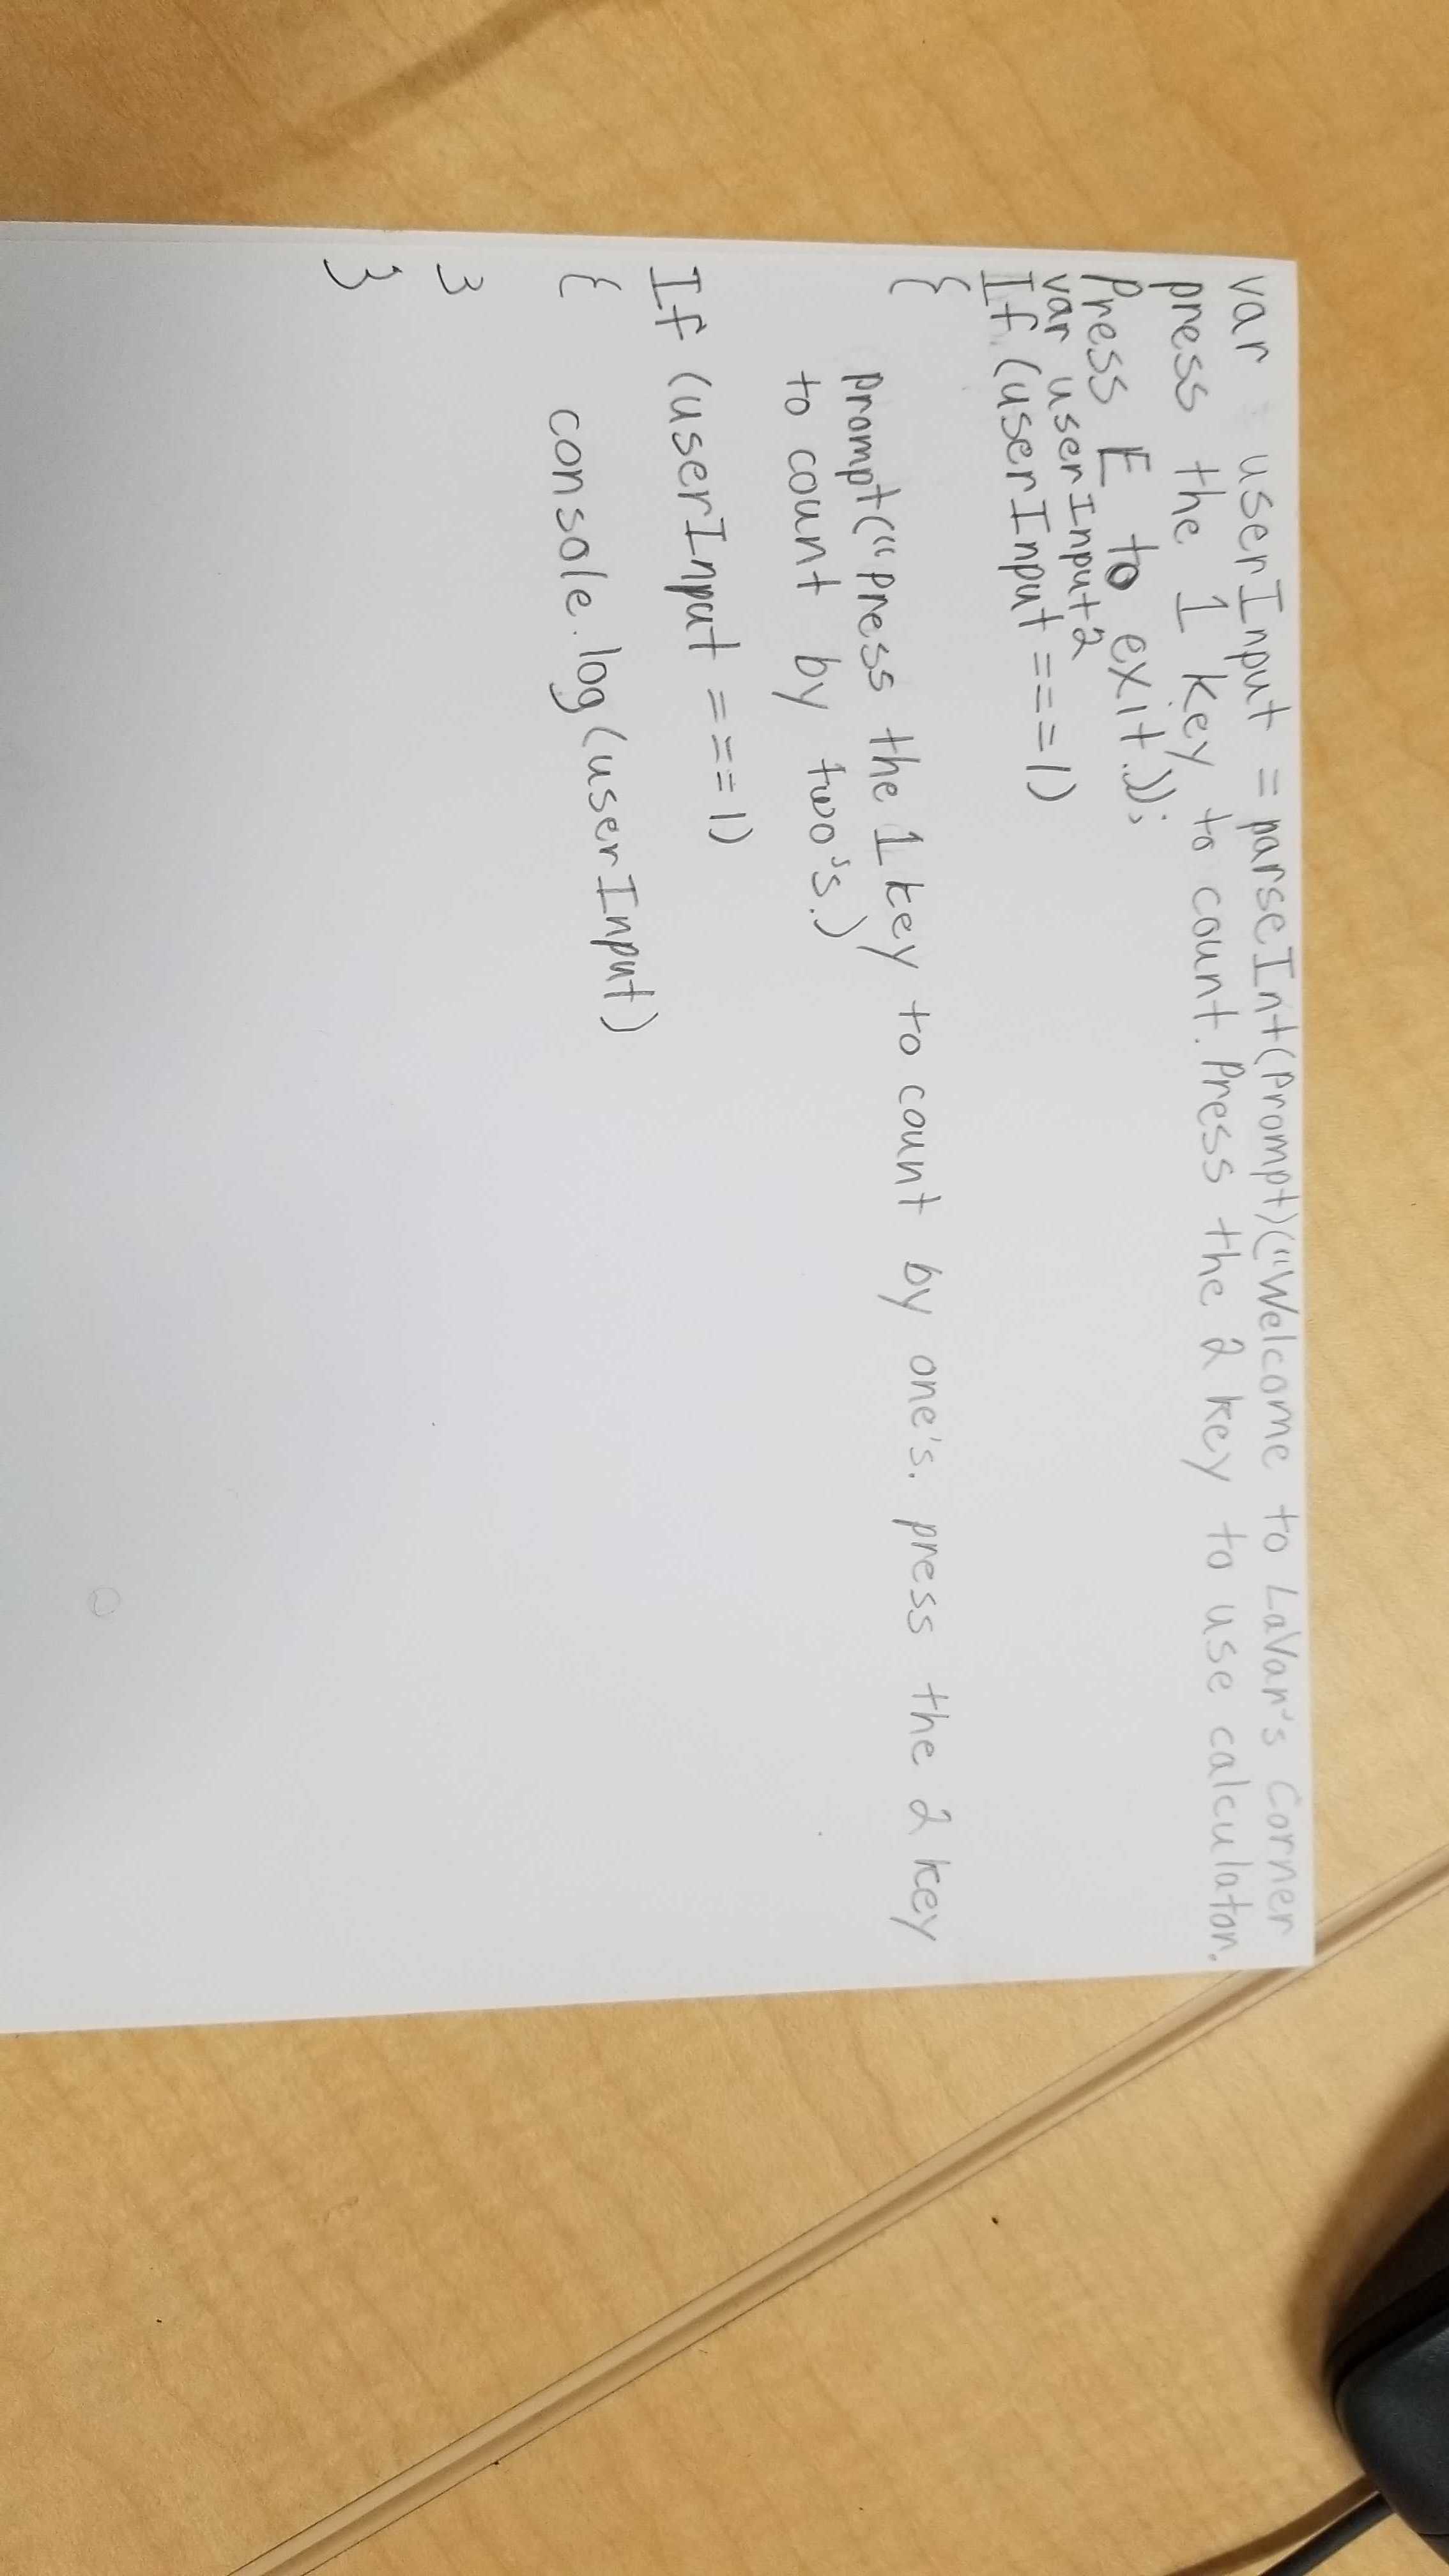 var userInput = parseInt(prompt)("Welcome to LaVar's Corner
press the 1 key to count. Press the 2 key to use calculator.
Press E to exit.));
var userInput2
If (userInput === 1)
{
prompt("press the 1 key to count by one's. press the 2 key
to count by two's.)
If (userInput === 1)
{
console.log(userInput)
}
}